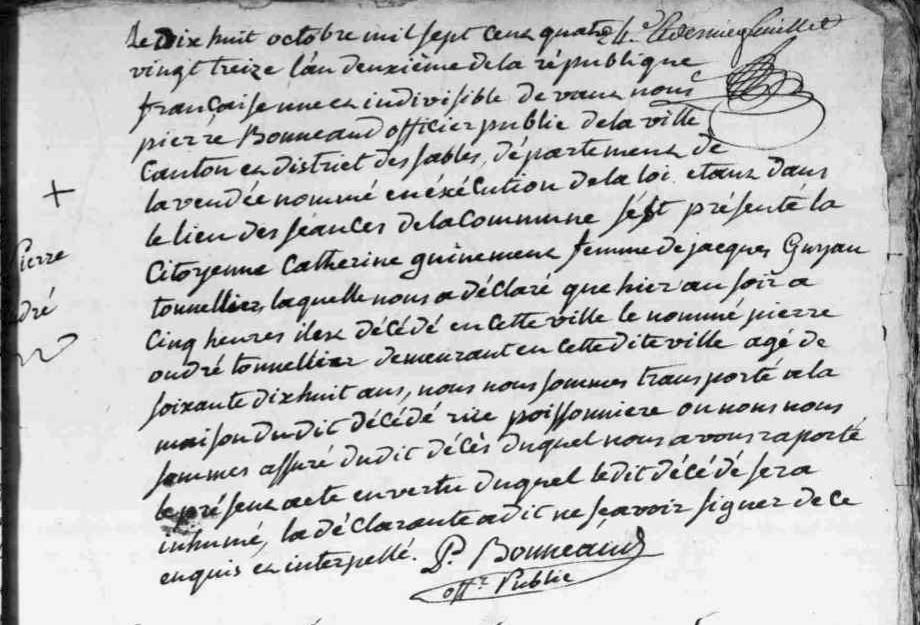 Le Dix huit octobre mil sept cens quatre 4.e et dernier feuillet
vingt treize l'an deuxième de la république
française une et indivisible devant nous
pierre Bonneaud officier public de la ville
Canton et district des sables, département de
la vendée nommé en éxécution de la loi etant dans
le lieu des séances de la Commune s'est présenté la
Citoyenne Catherine guinement femme de jacques
tonnellier, laquelle nous a déclaré que hier au soir a
Cinq heures il est décédé en cette ville le nommé pierre
andré tonnellier demeurant en cette dite ville agé de
soixante dix huit ans, nous nous sommes transporté a la
maison du dit décédé rue poissonniere ou nous nous
sommes assuré du dit décès duquel nous avons raporté
le présent acte en vertu duquel le dit décédé sera
inhumé, la déclarante a dit ne sçavoir signer de ce
enquis et interpellé. P. Bonneaud
off.r Public
Pierre
dré